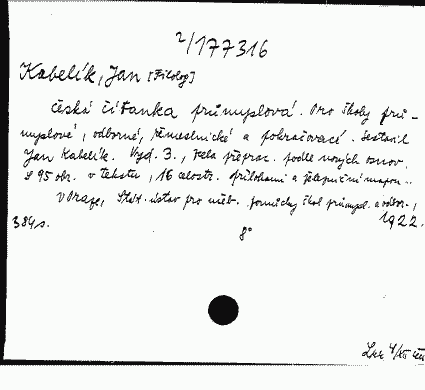 2/177316
Kabelík, Jan [Filolog]
Česká čítanka průmyslová. Pro školy prů-
myslové, odborné, řemeslnické a pokračovací. Sestavil
Jan Kabelík. Vyd. 3., zcela přeprac. podle nových osnov.
S 95 obr. v textu, 16 celostr. přílohami a železniční mapou.
V Praze, Stát. ústav pro učeb. pomůcky škol průmysl. a odbor.,
384 s. 1922.
8°